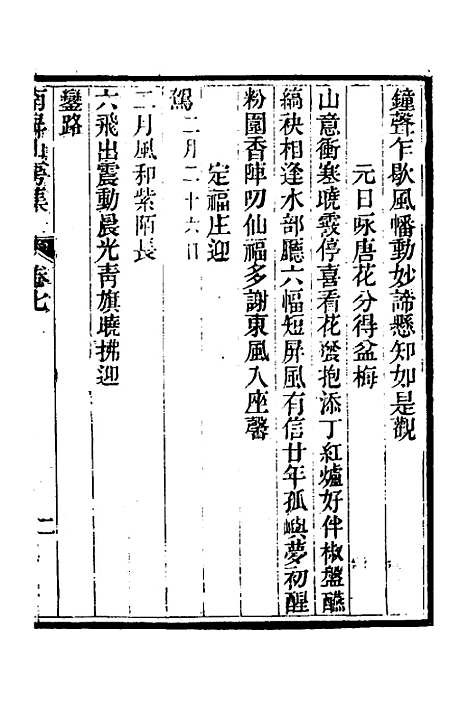 鐘聲乍歇風幡動妙諦懸知如是觀
元日咏唐花分得盆梅
山意衝寒曉霰停喜看花蕊抱添丁紅爐好伴椒盤醼
縞袂相逢水部廳六幅短屏風有信廿年孤嶼夢初醒
粉園香陣叨仙福多謝東風入座馨
定福庄迎
駕二月二十六日
二月風和紫陌長
六飛出震動晨光靑旗曉拂迎
鑾路
南屏山房集
卷七
二